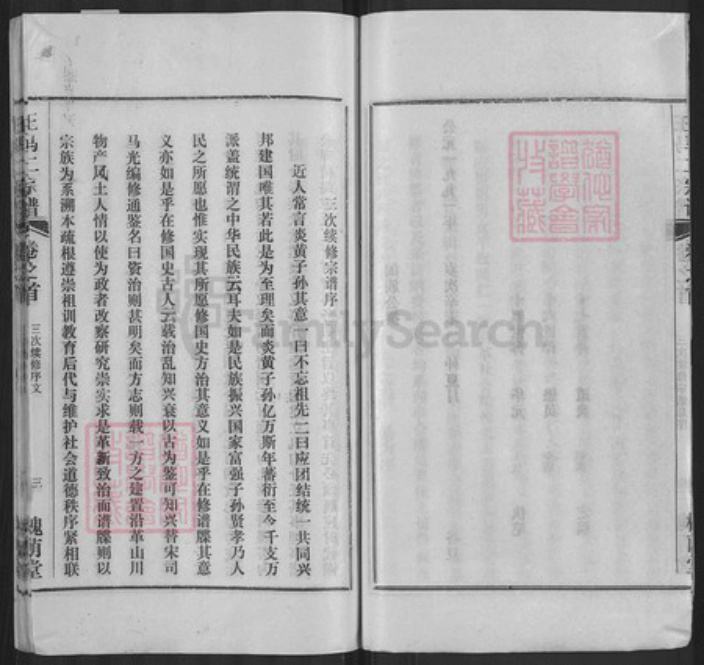 三次续修宗谱序
近人常言炎黄子孙其意一曰不忘祖先二曰应团结统一共同兴
邦建国唯其若此是为至理矣而炎黄子孙亿万斯年蕃衍至今千支万
派盖统谓之中华民族云耳夫如是民族振兴国家富强子孙贤孝乃人
民之所愿也惟实现其所愿修国史方治其意义如是乎在修谱牒其意
义亦如是乎在修国史古人云载治乱知兴衰以古为鉴可知兴替宋司
马光编修通鉴名曰资治则甚明矣而方志则载一方之建置沿革山川
物产风土人情以使为政者改察研究崇实求是革新致治而谱牒则以
宗族为系溯本疏根遵崇祖训教育后代与维护社会道德秩序紧相联
王马二宗谱
卷之首
三次续修序文
三
槐荫堂
FamilySearch